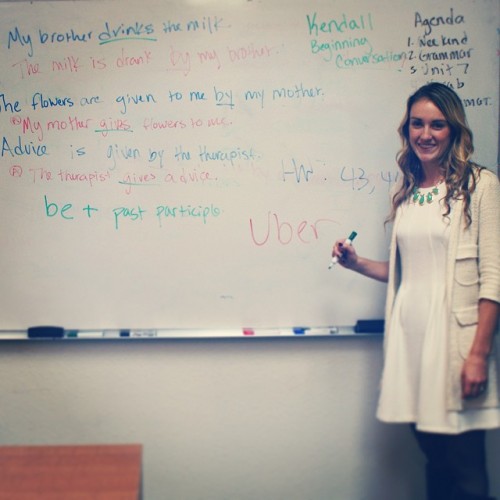 My brother drinks the milk.
The milk is drank by my brother.
The flowers are given to me by my mother.
My mother gives flowers to me.
Advice is given by the therapist.
The therapist gives advice.
be + past participle
Uber
HW: 43, 4
Kendall
Beginning
Conversation
Agenda
1. Weekend
2. Grammar
3 Unit 7